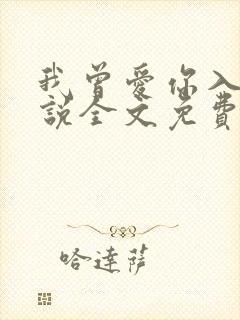 我曾愛你入
說全文免費
哈達薩